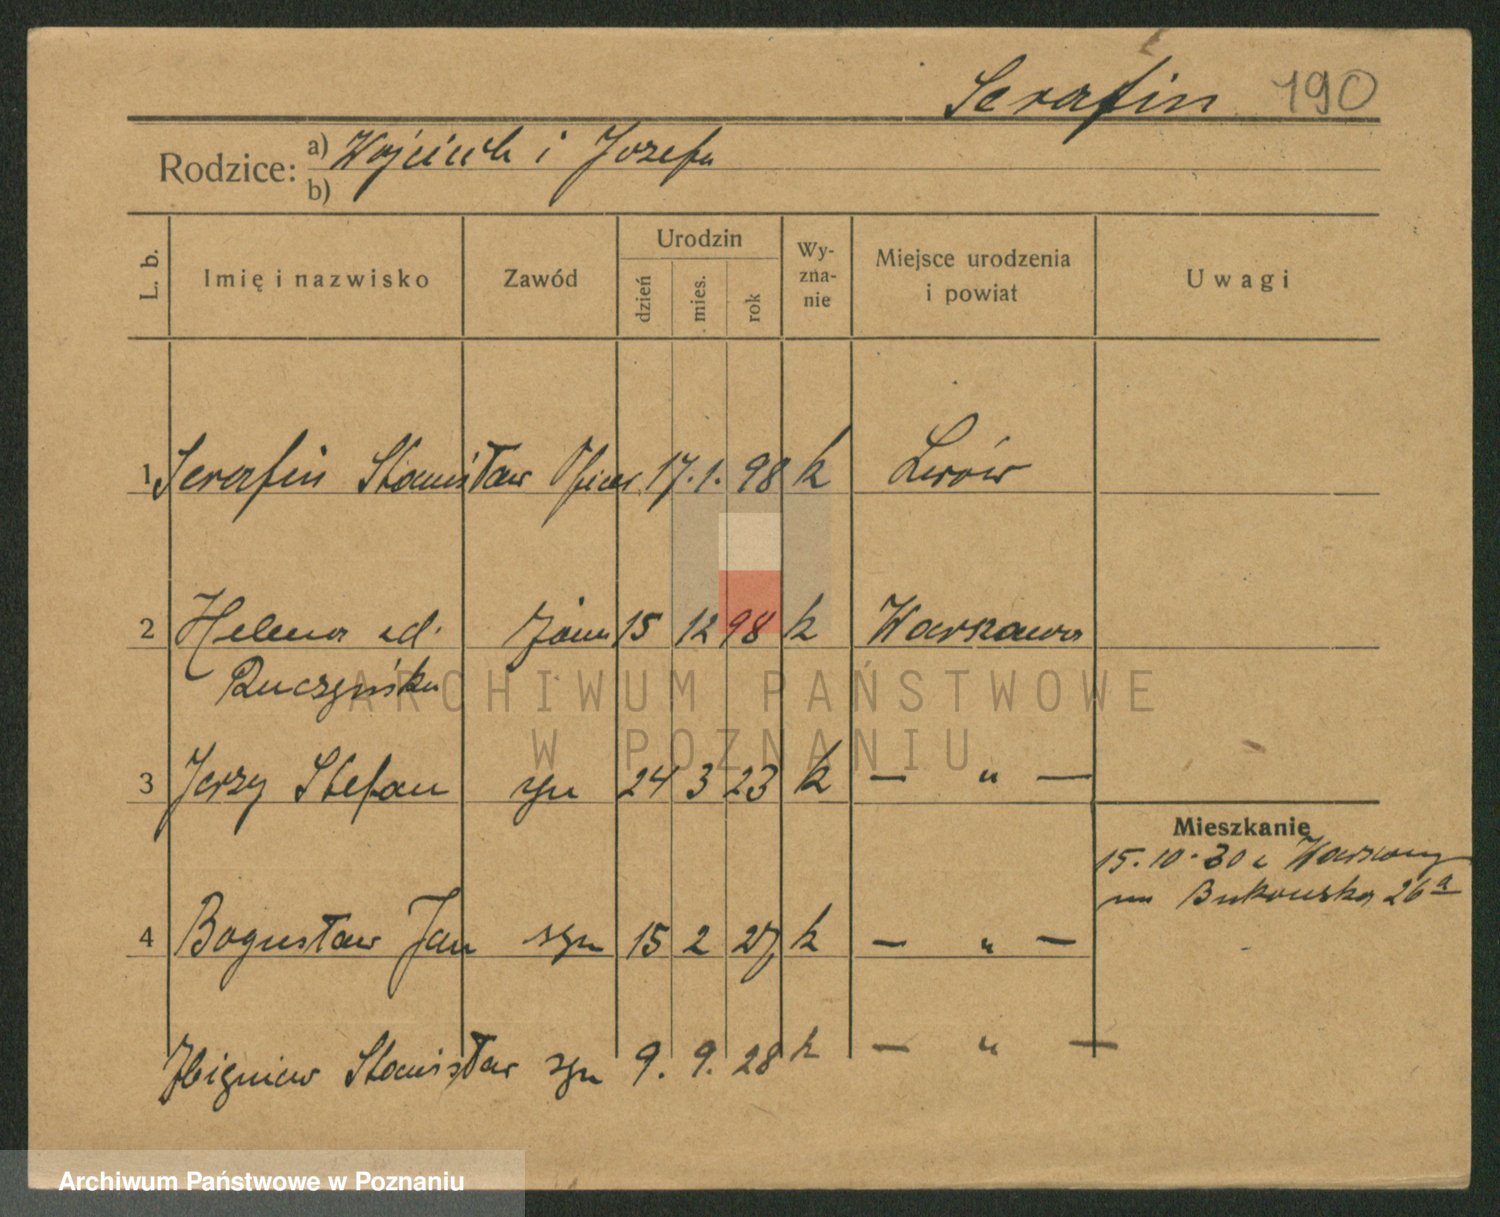 Serafin 190
Rodzice: a) Wojciech i Józefa
b)
L. b. Imię i nazwisko Zawód Urodzin dzień mies. rok Wy-zna-nie Miejsce urodzenia i powiat Uwagi
1 Serafin Stanisław Oficer 17. 1. 98 k Lwów
2 Helena żona 15 12 98 k Warszawa
ARCHIWUM PAŃSTWOWE
W POZNANIU
3 Jerzy Stefan syn 24 3 23 k — " —
Mieszkanie
15.10.30 z Warszawy
Bukowska 26a
4 Bogusław Jan syn 15 2 27 k — " —
Zbigniew Stanisław syn 9. 9. 28 k — " —
Archiwum Państwowe w Poznaniu